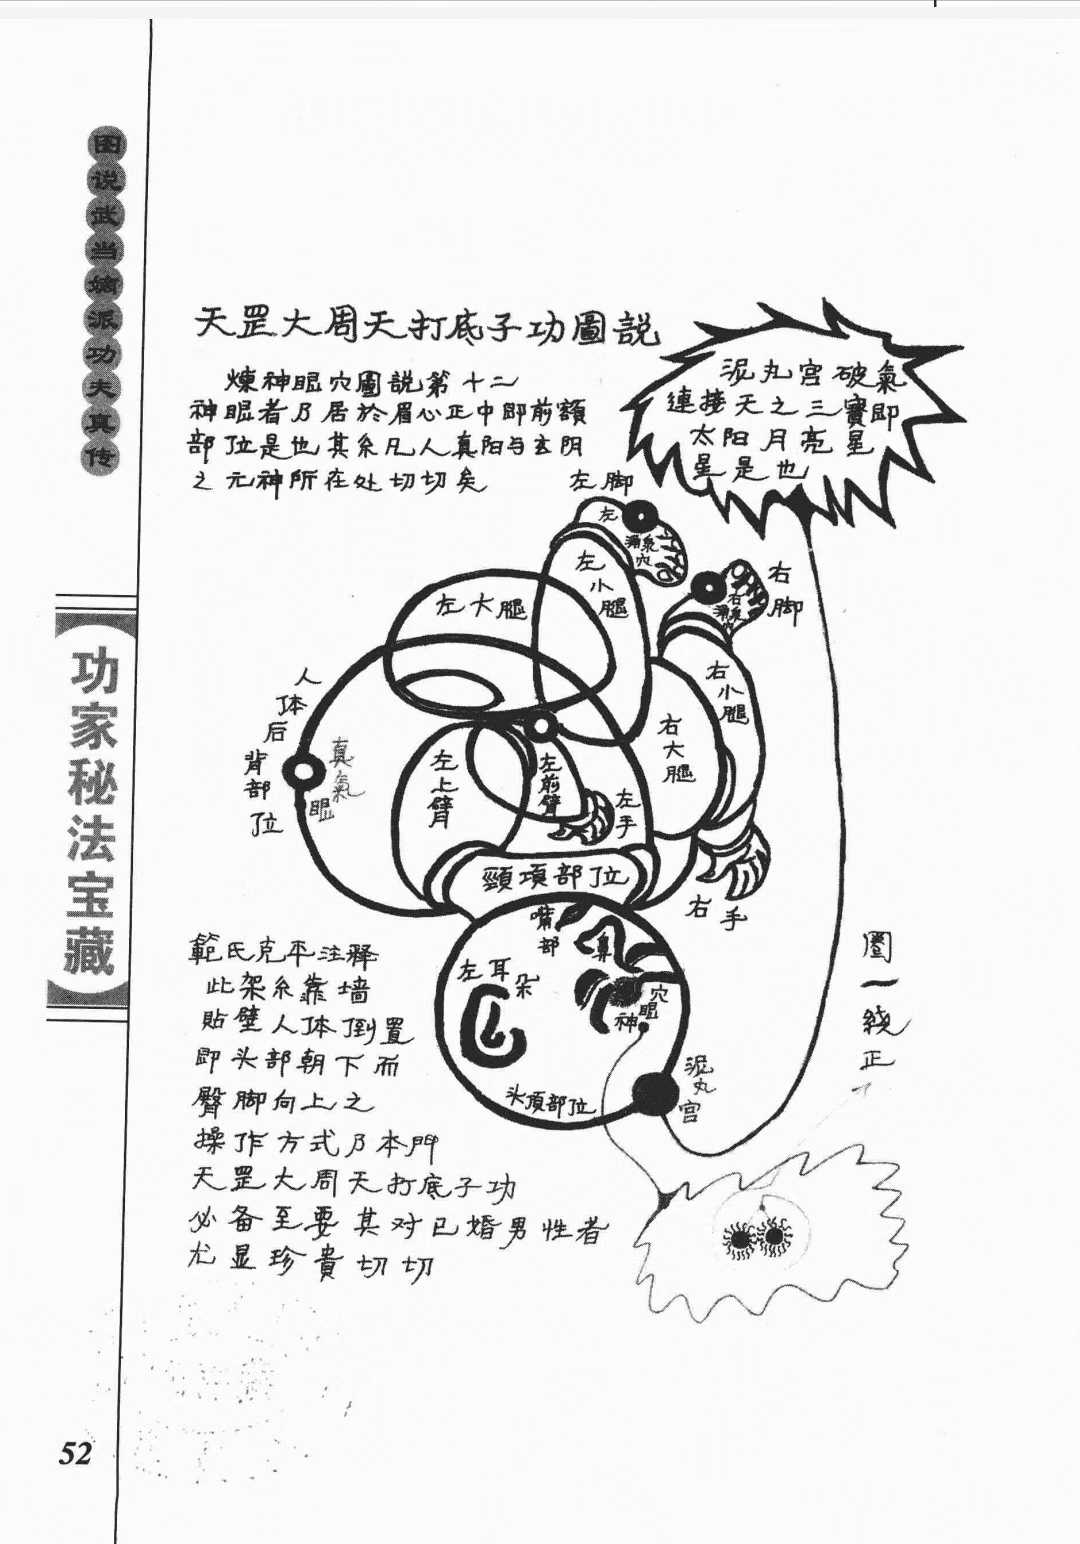 图说武当嫡派功夫真传
功家秘法宝藏
52
天罡大周天打底子功圖説
煉神眼穴圖説第十二
神眼者乃居於眉心正中即前額
部位是也其系凡人真阳与玄阴
之元神所在处切切矣
泥丸宫破氣
連接天之三寶即
太阳月亮星
星是也
左脚
左
涌泉
穴
右
脚
右
涌泉
穴
左大腿
左
小
腿
右
小
腿
右
大
腿
人
体
后
背
部
位
真
氣
眼
左
上
臂
左
前
臂
左
手
右手
頸項部位
嘴
部
鼻
左耳
朵
穴
眼
神
头頂部位
泥
丸
宫
圈
一
繞
正
範氏克平注释
此架系靠墙
貼壁人体倒置
即头部朝下而
臀脚向上之
操作方式乃本門
天罡大周天打底子功
必备至要其对已婚男性者
尤显珍貴切切